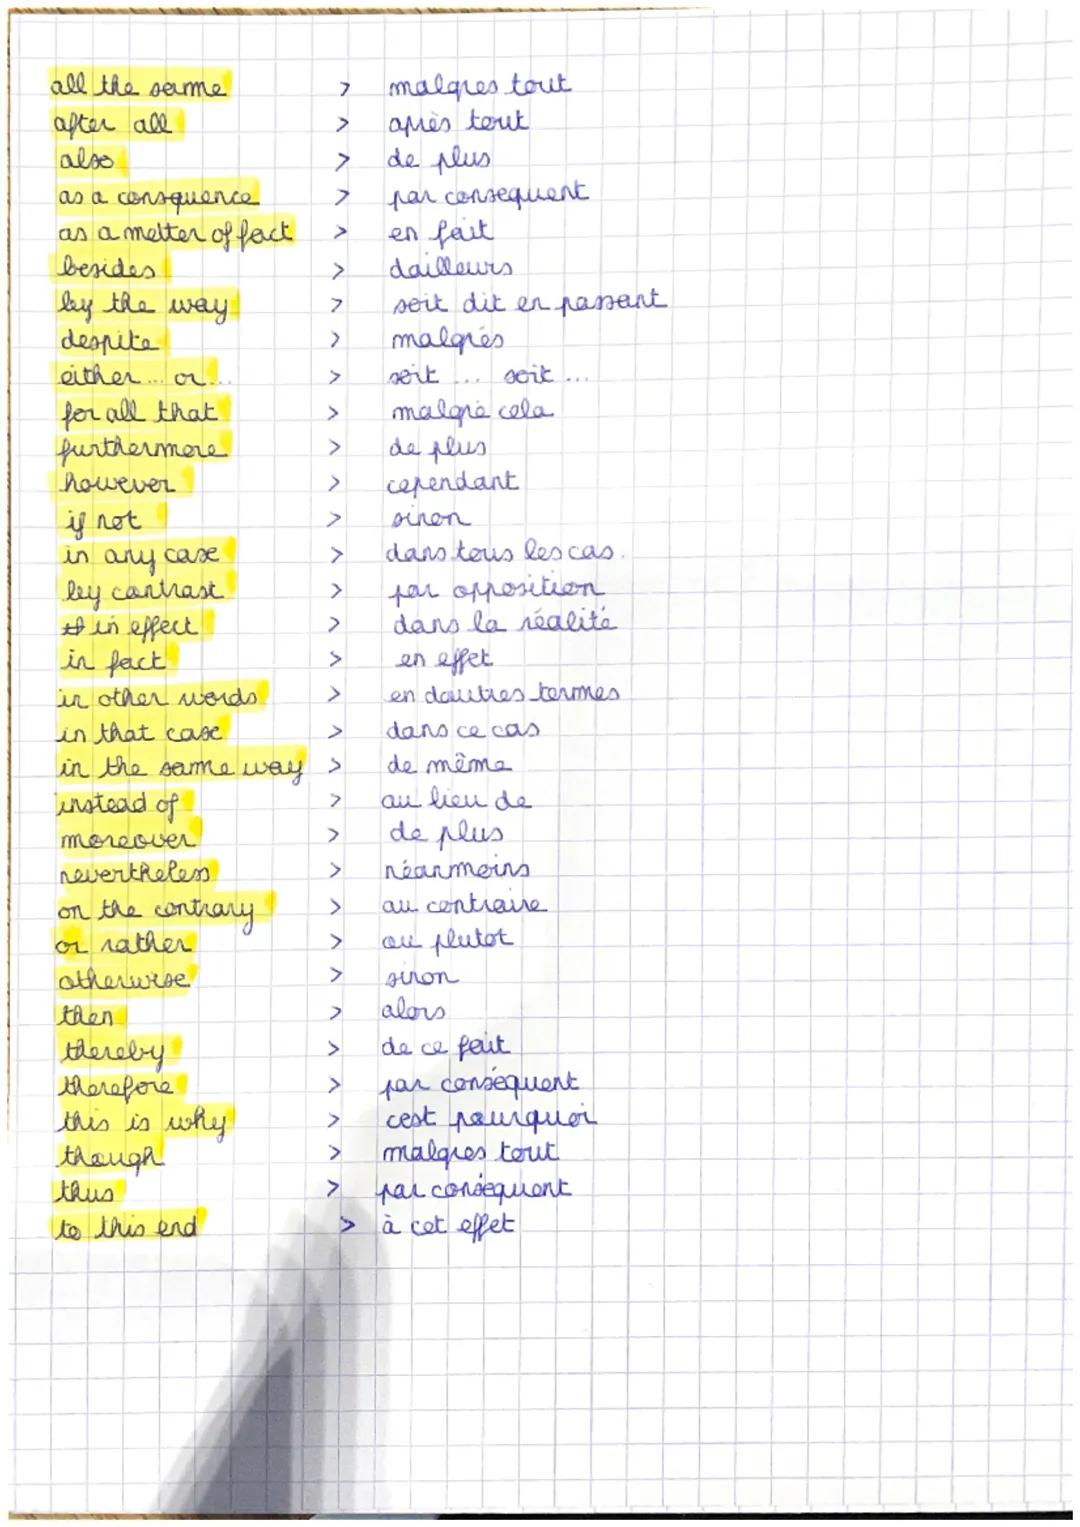 all the same > malgres tout
after all > après tout
also > de plus
as a consquence > par consequent
as a metter of fact > en fait
besides > dailleurs
by the way > soit dit en passant
despite > malgrés
either ... or ... > soit ... soit ...
for all that > malgré cela
furthermore > de plus
however > cependant
if not > sinon
in any case > dans tous les cas.
by contrast > par opposition
in effect > dans la réalité
in fact > en effet
in other words > en dautres termes
in that case > dans ce cas
in the same way > de même
instead of > au lieu de
moreover > de plus
nevertheless > néanmoins
on the contrary > au contraire
or rather > ou plutot
otherwise > sinon
then > alors
thereby > de ce fait
therefore > par conséquent
this is why > cest pourquoi
though > malgres tout
thus > par conséquent
to this end > à cet effet